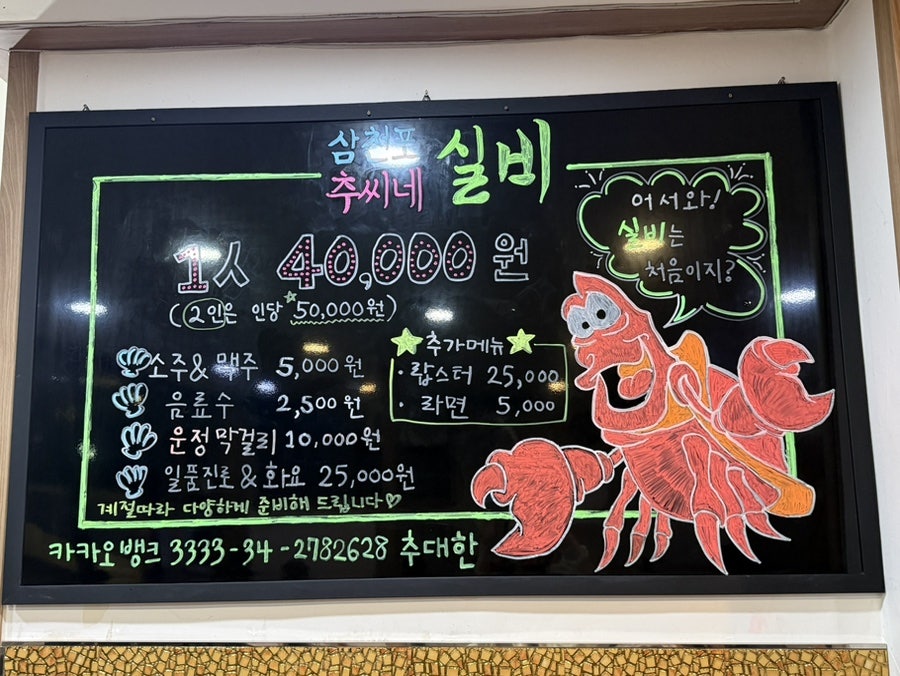 삼천포 실비
추씨네
어서와!
실비는
처음이지?
1人 40,000원
(2인은 인당 50,000원)
소주 & 맥주 5,000원
음료수 2,500원
운정막걸리 10,000원
일품진로 & 화요 25,000원
추가메뉴
· 랍스터 25,000
· 라면 5,000
계절따라 다양하게 준비해 드립니다♡
카카오뱅크 3333-34-2782628 추대한